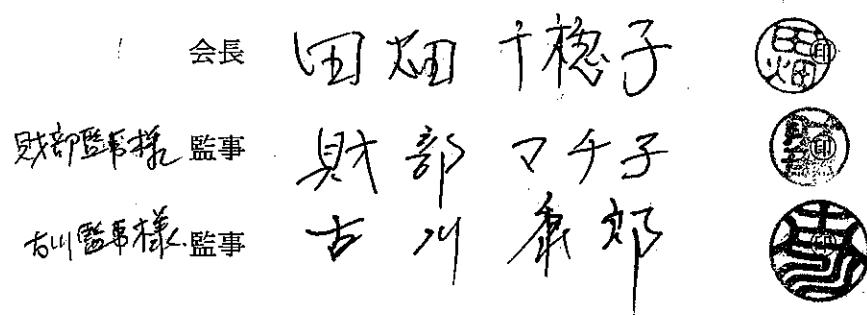 会長 田畑 千穂子 ㊞
財部監事様 監事 財部 マチ子 ㊞
古川監事様 監事 古川 康郎 ㊞